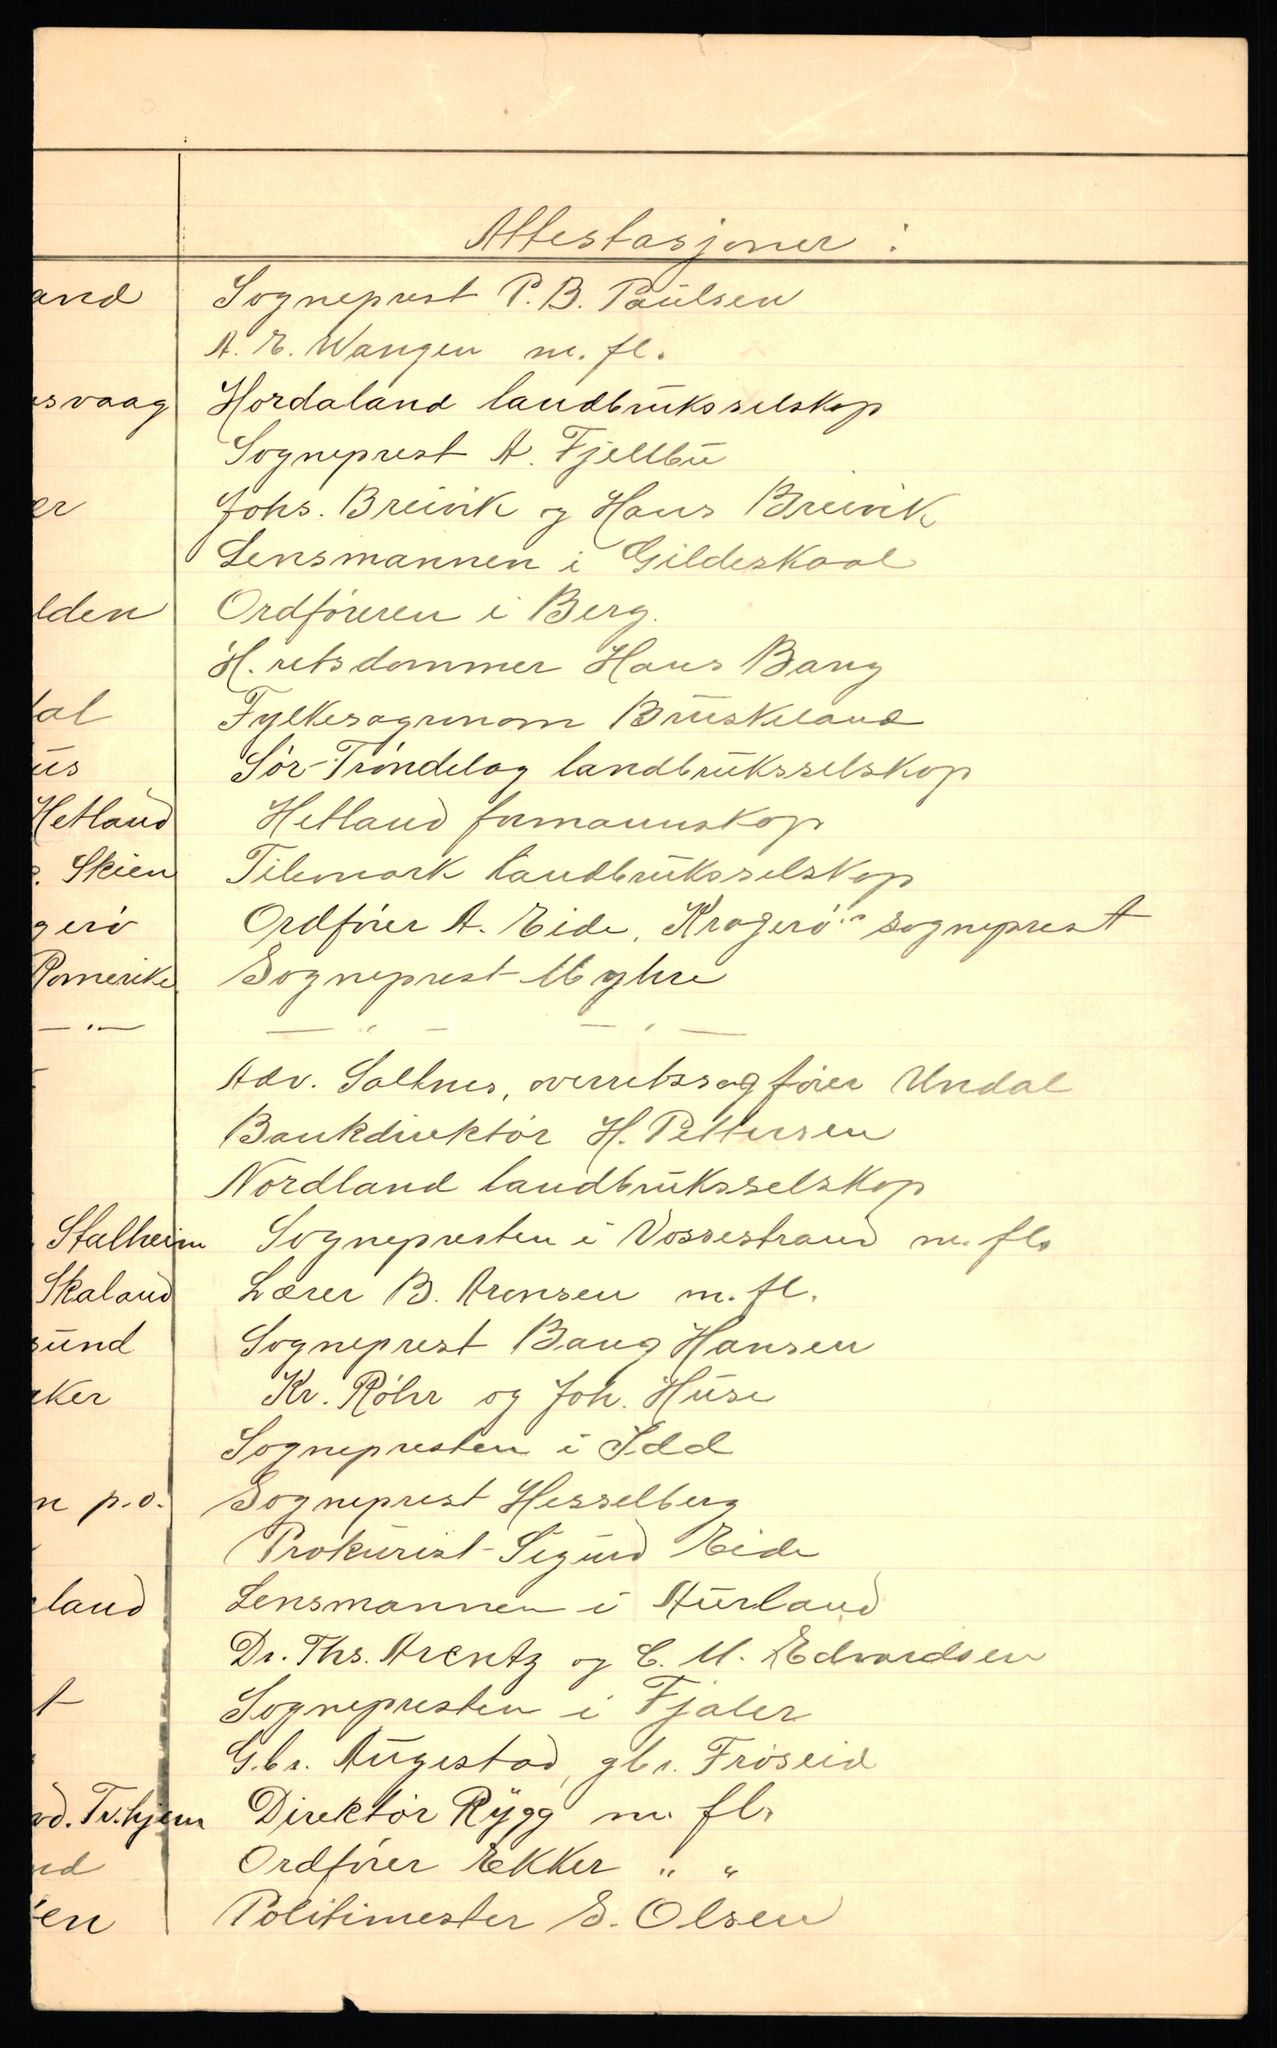 Attestasjoner :
and Sogneprest P. B. Paulsen
A. E. Wangen m. fl.
svaag Hordaland landbruksselskap
Sogneprest A. Fjellbu
er Johs. Breivik og Hans Breivik
Lensmannen i Gildeskaal
lden Ordføreren i Berg.
H. retsdommer Hans Bang
dal Fylkesagronom Bruskeland
us Sør-Trøndelag landbruksselskap
Hetland Hetland formannskap
Skien Telemark landbruksselskap
gerø Ordfører A. Eide, Kragerø sogneprest
Romerike Sogneprest Myhre
— " — — " — — " —
Adv. Saltnes, overretssagfører Undal
Bankdirektør H. Pettersen
Nordland landbruksselskap
Stalheim Sognepresten i Vossestrand m. fl.
Skaland Lærer B. Arensen m. fl.
sund Sogneprest Bang Hansen
ker Kr. Røhr og Joh. Huse
Sognepresten i Idd
n p.o. Sogneprest Hesselberg
Prokurist Sigurd Eide
land Lensmannen i Aurland
Dr. Ths. Arentz og C. M. Edvardsen
t Sognepresten i Fjaler
Gbr. Augestad, gbr. Frøseid
d. Tr.hjem Direktør Rygg m. fl.
nd Ordfører Ekker " "
en Politimester S. Olsen